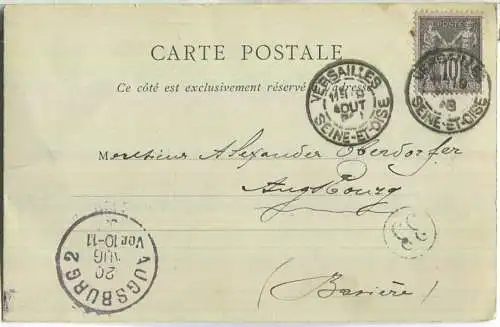 CARTE POSTALE
Ce côté est exclusivement réservé à l'adresse
POSTES
10
VERSAILLES
AOUT
SEINE-ET-OISE
VERSAILLES
SEINE-ET-OISE
Monsieur Alexander Oberdorfer
Augsbourg
(Bavière)
AUGSBURG 2
20
AUG
Vor.10-11